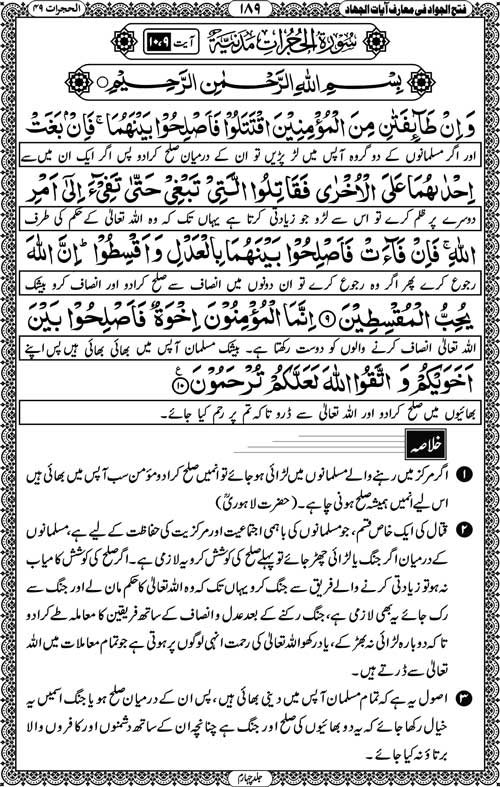 فتح الجواد فی معارف آیات الجهاد
۱۸۹
الحجرات ۴۹
سُوْرَةُ الحُجُرَاتِ مَدَنِيَّةٌ
آیت ۱۰،۹
بِسْمِ اللّٰهِ الرَّحْمٰنِ الرَّحِيْمِ
وَاِنْ طَآىِٕفَتٰنِ مِنَ الْمُؤْمِنِيْنَ اقْتَتَلُوْا فَاَصْلِحُوْا بَيْنَهُمَا ۚ فَاِنْۢ بَغَتْ
اور اگر مسلمانوں کے دو گروہ آپس میں لڑ پڑیں تو ان کے درمیان صلح کرادو پس اگر ایک ان میں سے
اِحْدٰىهُمَا عَلَى الْاُخْرٰى فَقَاتِلُوا الَّتِيْ تَبْغِيْ حَتّٰى تَفِيْٓءَ اِلٰٓى اَمْرِ
دوسرے پر ظلم کرے تو اس سے لڑو جو زیادتی کرتا ہے یہاں تک کہ وہ اللہ تعالیٰ کے حکم کی طرف
اللّٰهِ ۚ فَاِنْ فَآءَتْ فَاَصْلِحُوْا بَيْنَهُمَا بِالْعَدْلِ وَاَقْسِطُوْا ؕ اِنَّ اللّٰهَ
رجوع کرے پھر اگر وہ رجوع کرے تو ان دونوں میں انصاف سے صلح کرادو اور انصاف کرو بیشک
يُحِبُّ الْمُقْسِطِيْنَ ۹ اِنَّمَا الْمُؤْمِنُوْنَ اِخْوَةٌ فَاَصْلِحُوْا بَيْنَ
اللہ تعالیٰ انصاف کرنے والوں کو دوست رکھتا ہے۔ بیشک مسلمان آپس میں بھائی بھائی ہیں پس اپنے
اَخَوَيْكُمْ وَ اتَّقُوا اللّٰهَ لَعَلَّكُمْ تُرْحَمُوْنَ ۱۰
بھائیوں میں صلح کرادو اور اللہ تعالیٰ سے ڈرو تاکہ تم پر رحم کیا جائے۔
خلاصہ
۱ اگر مرکز میں رہنے والے مسلمانوں میں لڑائی ہو جائے تو انہیں صلح کرادو مؤمن سب آپس میں بھائی ہیں
اس لیے انہیں ہمیشہ صلح ہونی چاہے۔ (حضرت لاہوریؒ)
۲ قتال کی ایک خاص قسم، جو مسلمانوں کی باہمی اجتماعیت اور مرکزیت کی حفاظت کے لیے ہے، مسلمانوں کے
درمیان اگر جنگ یا لڑائی چھڑ جائے تو پہلے صلح کی کوشش کرو یہ لازمی ہے۔ اگر صلح کی کوشش کامیاب
نہ ہو تو زیادتی کرنے والے فریق سے جنگ کرو یہاں تک کہ وہ اللہ تعالیٰ کا حکم مان لے اور جنگ سے
رک جائے یہ بھی لازمی ہے، جنگ رکنے کے بعد عدل و انصاف کے ساتھ فریقین کا معاملہ طے کرادو
تاکہ دوبارہ لڑائی نہ بھڑکے، یاد رکھو اللہ تعالیٰ کی رحمت انہی لوگوں پر ہوتی ہے جو تمام معاملات میں اللہ
تعالیٰ سے ڈرتے ہیں۔
۳ اصول یہ ہے کہ تمام مسلمان آپس میں دینی بھائی ہیں، پس ان کے درمیان صلح ہو یا جنگ اسمیں یہ
خیال رکھا جائے کہ یہ دو بھائیوں کی صلح اور جنگ ہے چنانچہ ان کے ساتھ دشمنوں اور کافروں والا
برتاؤ نہ کیا جائے۔
جلد چہارم